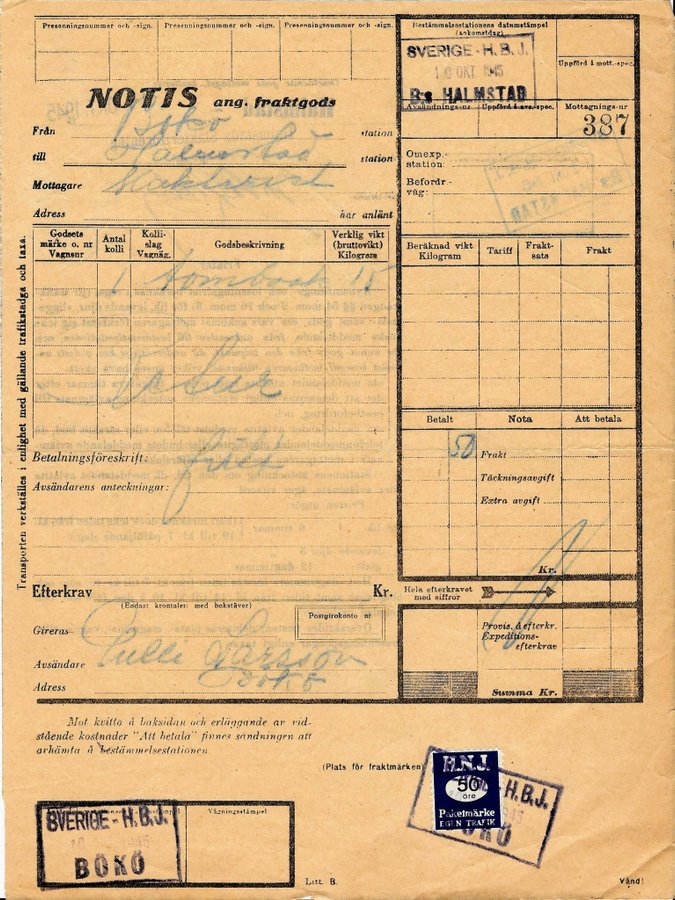 Presenningsnummer och -sign. Presenningsnummer och -sign. Presenningsnummer och -sign.
Bestämmelsestationens datumstämpel
(ankomstdag)
SVERIGE - H.B.J.
10 OKT 1945
B:s HALMSTAD
Uppförd i mott.-spec.
NOTIS ang. fraktgods
Avsändnings-nr Uppförd i avs.-spec. Mottagnings-nr
387
Från Bokö station
till Halmstad station
Mottagare
Adress har anlänt
Omexp.-
station:
Befordr.-
väg:
Godsets
märke o. nr
Vagnsnr
Antal
kolli
Kolli-
slag
Vagnäg.
Godsbeskrivning
Verklig vikt
(bruttovikt)
Kilogram
Beräknad vikt
Kilogram
Tariff
Frakt-
sats
Frakt
1 15
Transporten verkställes i enlighet med gällande trafikstadga och taxa.
Betalt Nota Att betala
50 Frakt
Täckningsavgift
Extra avgift
Kr.
Betalningsföreskrift:
Avsändarens anteckningar:
Efterkrav Kr.
(Endast krontalen med bokstäver)
Hela efterkravet
med siffror
Gireras
Postgirokonto nr
Provis. å efterkr.
Expeditions-
efterkrav
Avsändare Larsson
Adress Bokö
Summa Kr.
Mot kvitto å baksidan och erläggande av vid-
stående kostnader "Att betala" finnes sändningen att
avhämta å bestämmelsestationen
(Plats för fraktmärken)
H.N.J.
50
öre
Paketmärke
EGEN TRAFIK
H.B.J.
BOKÖ
SVERIGE - H.B.J.
BOKÖ
Vägningsstämpel
Litt. B.
Vänd!